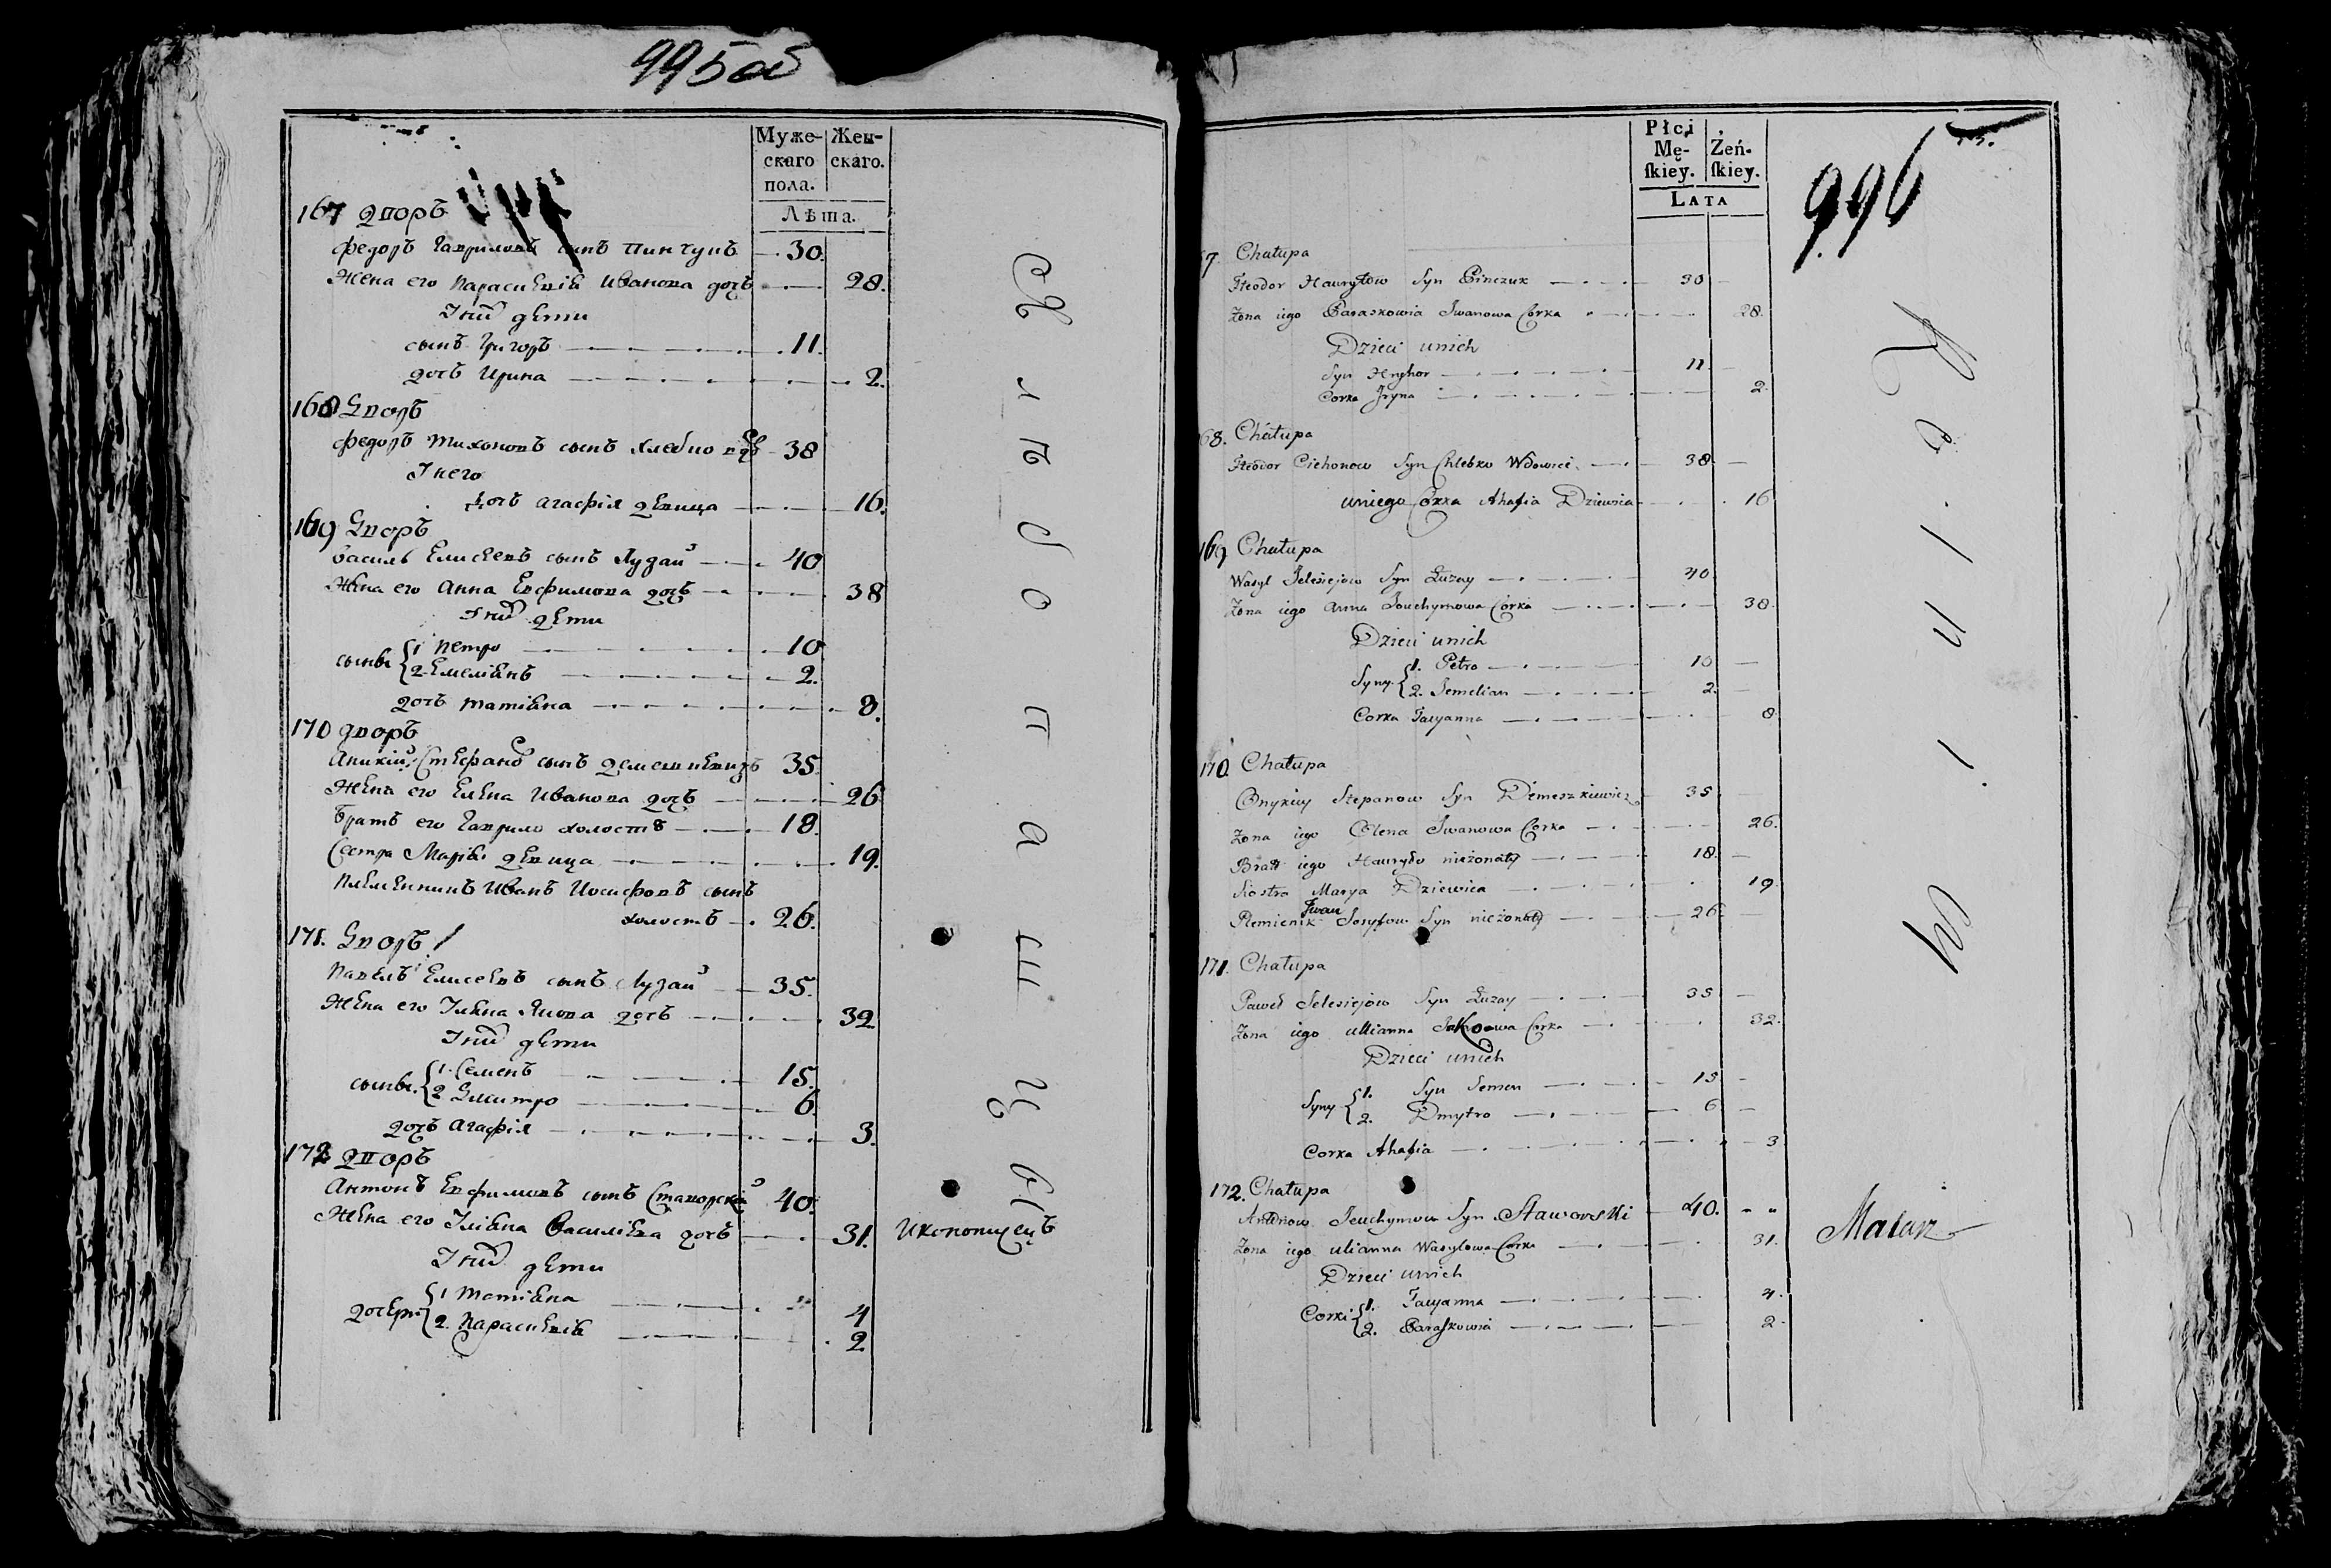 995об
Муже-
скаго
пола.
Жен-
скаго.
Лѣта.
167 дворъ
Федоръ Гавриловъ сынъ Пинчукъ 30.
Жена его Параскевія Иванова дочь 28.
У них дети
сынъ Григоръ 11.
дочь Ирина 2.
168 Дворъ
Федоръ Тихоновъ сынъ Хлебко вдов 38
У него
дочь Агафія девица 16.
169 Дворъ
Василь Елисеевъ сынъ Лузай 40
Жена его Анна Евфимова дочь 38
У них дети
сыны {1 Петро 10
2 Емеліянъ 2.
дочь Татіяна 8.
170 дворъ
Аникій Стефанов сынъ Демешкевичъ 35.
Жена его Елена Иванова дочь 26
Братъ его Гаврило холостъ 18.
Сестра Марія девица 19.
Племенникъ Иванъ Иосифовъ сынъ
холостъ 26.
171. Дворъ
Павелъ Елисеевъ сынъ Лузай 35.
Жена его Уліяна Якова дочь 32
У них дети
сыны. {1. Семенъ 15.
2 Дмитро 6.
дочь Агафія 3.
172 дворъ
Антонъ Евфимовъ сынъ Ставорскій 40.
Жена его Уліяна Василіева дочь 31. Иконописецъ
У них дети
дочери {1 Татіяна 4
2. Параскевія 2
Płci
Mę-
skiey.
Żeń-
skiey.
LATA
996
7. Chałupa
Fteodor Hauryłow Syn Pinczuk 30
Zona iego Paraskowia Iwanowa Corka 28.
Dzieci unich
Syn Hryhor 11
Corka Iryna 2.
68. Chałupa
Fteodor Cichonow Syn Chlebko Wdowiec 38
uniego Corka Ahafia Dziewica 16
169 Chałupa
Wasyl Jelesiejow Syn Łuzay 40
Zona iego Anna Jeuchymowa Corka 38.
Dzieci unich
Syny {1. Petro 10
2. Jemelian 2.
Corka Tacyanna 8
170. Chałupa
Onykiey Stepanow Syn Demeszkiewicz 35.
Zona iego Olena Iwanowa Corka 26.
Bratt iego Hauryło nieżonaty 18.
Siostra Marya Dziewica 19
Plemienik Iwan Josyfow Syn nieżonaty 26.
171. Chałupa
Paweł Jelesiejow Syn Łuzay 35
Zona iego Ullianna Jakowa Corka 32.
Dzieci unich
Syny {1. Syn Semen 15
2. Dmytro 6
Corka Ahafia 3
172. Chałupa
Antonow Jeuchymow Syn Stawarski 40. Malarz
Zona iego Ulianna Wasylowa Corka 31.
Dzieci unich
Corki {1. Tacyanna 4.
2. Paraskowia 2.